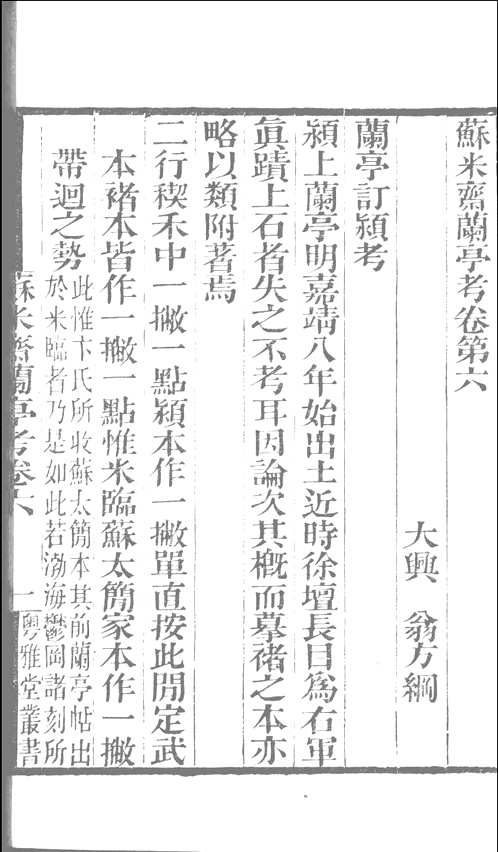 蘇米齋蘭亭考卷第六
大興　翁方綱
蘭亭訂潁考
潁上蘭亭明嘉靖八年始出土近時徐壇長目爲右軍
眞蹟上石者失之不考耳因論次其概而摹褚之本亦
略以類附著焉
二行稧禾中一撇一點潁本作一撇單直按此開定武
本褚本皆作一撇一點惟米臨蘇太簡家本作一撇
帶迴之勢此惟卞氏所收蘇太簡本其前蘭亭帖出
於米臨者乃是如此若渤海鬱岡諸刻所
蘇米齋蘭亭考卷六
一粵雅堂叢書